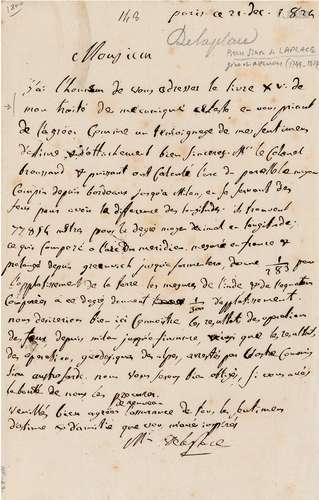 148 paris ce 21 dec. 1824
Delaplace
Monsieur
j'ai l'honneur de vous adresser le livre XV. de
mon traité de mécanique céleste en vous priant
de l'agréer comme un témoignage de mes sentimens
d'estime et d'attachement bien sinceres. Mrs. le Colonel
Brousseaud et puissant ont calculé l'arc du parallele moyen
compris depuis bordeaux jusqu'à Milan, en se servant des
feux pour avoir la difference des longitudes. ils trouvent
77865 metres pour le degré moyen decimal en longitude;
ce qui comparé à l'arc du meridien mesuré en france et
prolongé depuis greenwich jusqu'à formentera donne 1/283 pour
l'applatissement de la terre. les mesures de l'inde et de l'equateur
comparées à ce degré donnent 1/300 d'applatissement.
nous desirerions bien ici connoitre les resultats des operations
de feux depuis milan jusqu'à fiume ainsi que les resultats
des operations geodesiques des alpes, arrestés par vostre commis
sion austrosarde. nous vous serons bien obligés, si vous avés
la bonté de nous les procurer.
veuillés bien agréer de nouveau l'assurance de tous les sentimens
d'estime et d'amitié que vous m'avés inspirés.
Mis de Laplace